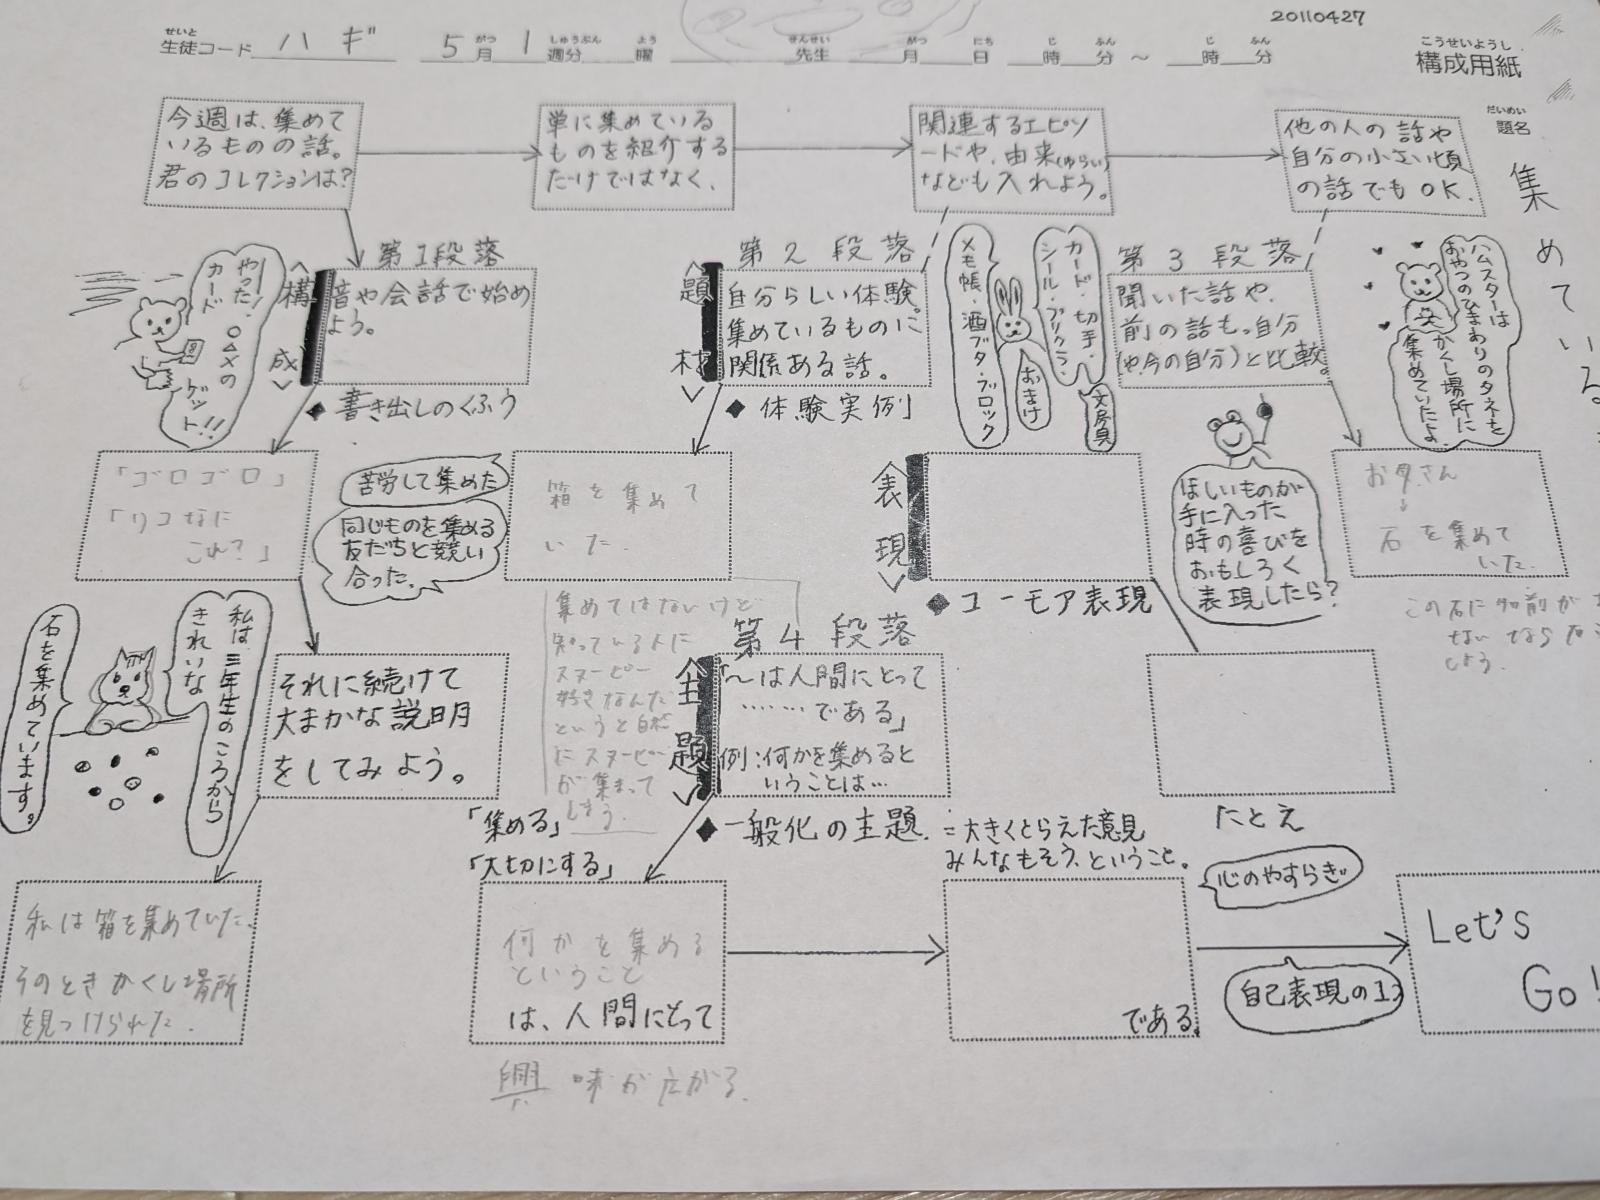 20110427
せいと
生徒コード ハギ 5月 1週分 曜 先生 月 日 時 分 ～ 時 分
がつ しゅうぶん よう せんせい がつ にち じ ふん じ ふん
こうせいようし
構成用紙
だいめい
題名
集めている
今週は、集めて
いるものの話。
君のコレクションは?
単に集めている
ものを紹介する
だけではなく、
関連するエピソ
ードや、由来(ゆらい)
なども入れよう。
他の人の話や
自分の小さい頃
の話でもOK.
第1段落
<構成>
音や会話で始め
よう。
◆書き出しのくふう
やった! ○△×の
カード
ゲット!!
「ゴロゴロ」
「リコなに
これ?」
それに続けて
大まかな説明
をしてみよう。
私は三年生のころから
きれいな
石を集めています。
私は箱を集めていた.
そのときかくし場所
を見つけられた.
第2段落
<題材>
自分らしい体験。
集めているものに
関係ある話。
◆体験実例
カード・切手・
シール・プリクラ・
メモ帳・酒ブタ・ブロック
おまけ
文房具
苦労して集めた
同じものを集める
友だちと競い
合った。
箱を集めて
いた.
集めてはないけど
知っている人に
スヌーピー
好きなんだ
というと自然
にスヌーピー
が集まって
しまう.
第3段落
聞いた話や、
前の話も。自分
(や今の自分)と比較。
ハムスターは
おやつのひまわりのタネを
かくし場所に
集めていたよ。
<表現>
◆ユーモア表現
ほしいものが
手に入った
時の喜びを
おもしろく
表現したら?
お母さん
↓
石を集めて
いた.
この石に
しよう.
たとえ
第4段落
<主題>
「～は人間にとって
………である」
例:何かを集めると
いうことは…
◆一般化の主題.
=大きくとらえた意見
みんなもそう、ということ。
「集める」
「大切にする」
何かを集める
ということ
は、人間にとって
興味が広がる.
である。
心のやすらぎ
自己表現の1つ
Let's
Go!